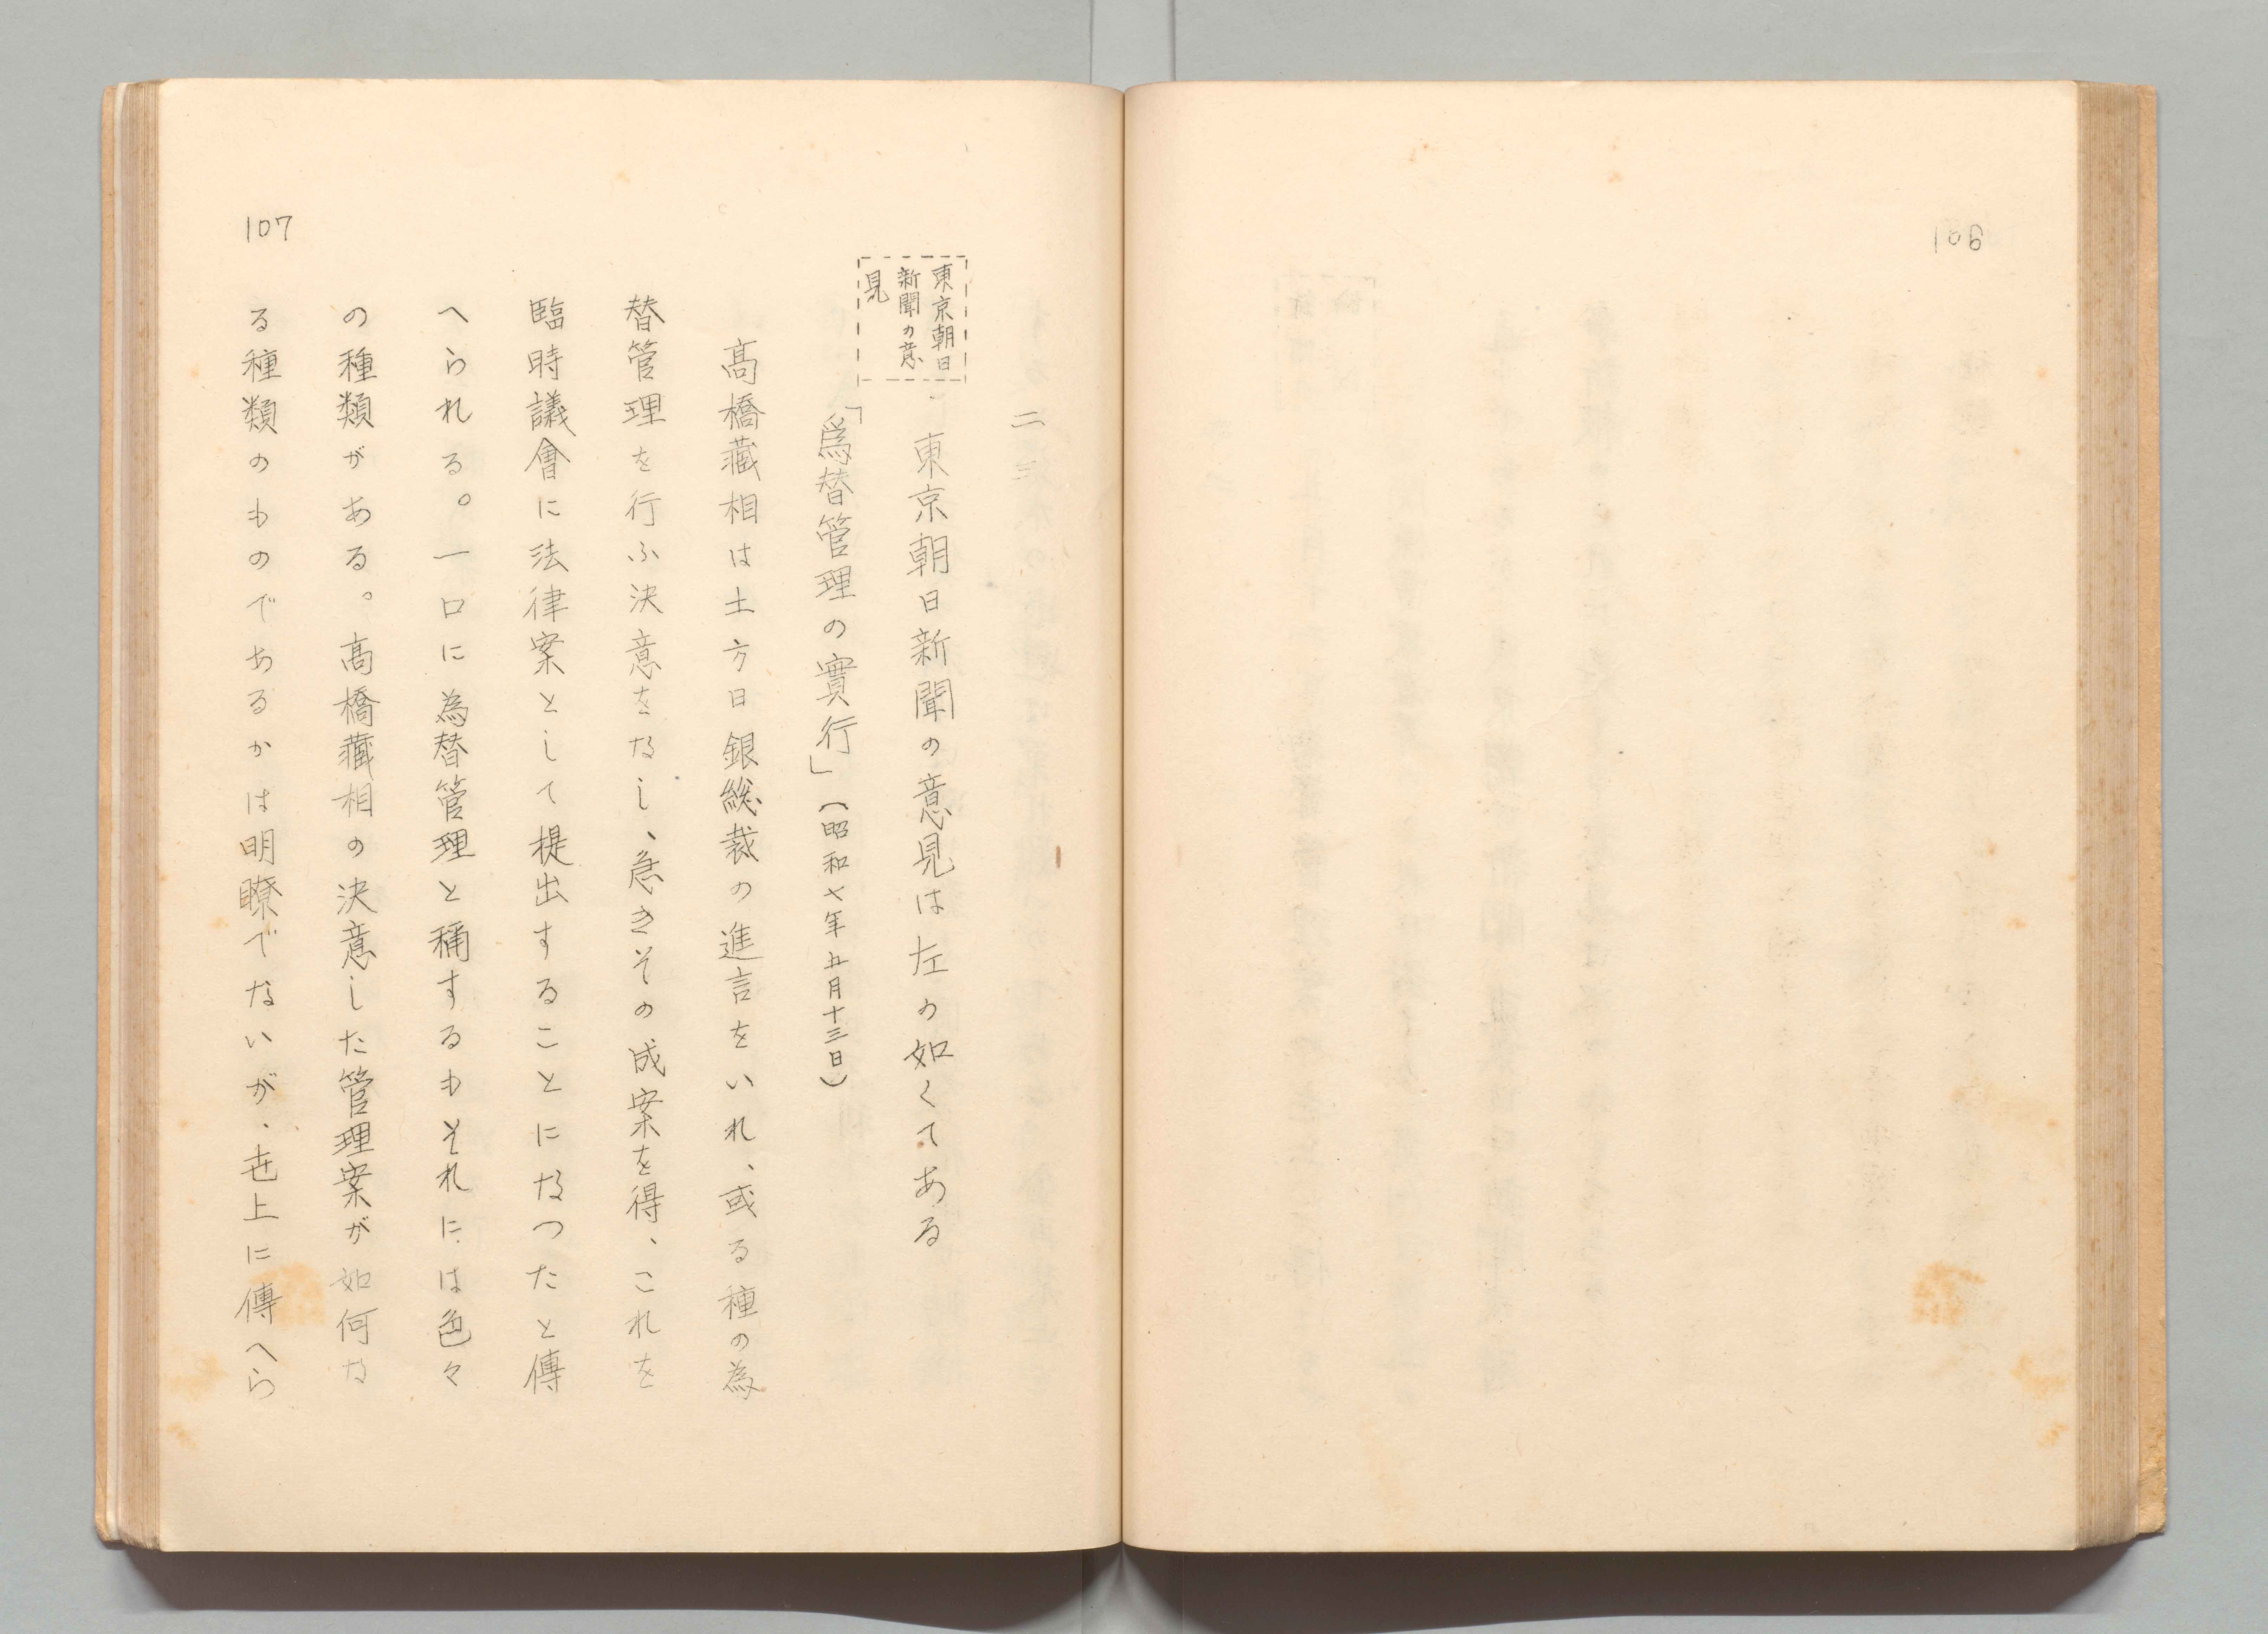 106
二三
東京朝日
新聞の意
見
東京朝日新聞の意見は左の如くてある
「爲替管理の實行」（昭和七年五月十三日）
髙橋藏相は土方日銀総裁の進言をいれ、或る種の為
替管理を行ふ決意をなし、急きその成案を得、これを
臨時議會に法律案として提出することになつたと傳
へられる。一口に為替管理と稱するもそれには色々
の種類がある。髙橋藏相の決意した管理案が如何な
る種類のものであるかは明瞭でないが、世上に傳へら
107